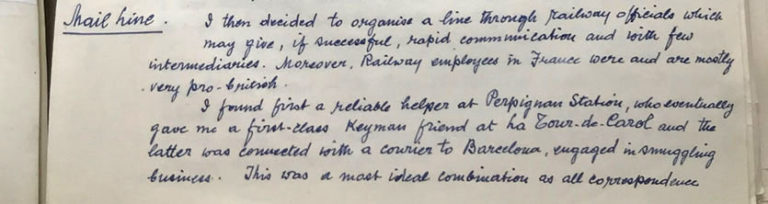 Mail Line. I then decided to organise a line through railway officials which
may give, if successful, rapid communication and with few
intermediaries. Moreover, Railway employees in France were and are mostly
very pro-british.
I found first a reliable helper at Perpignan Station, who eventually
gave me a first-class Keyman friend at La Tour-de-Carol and the
latter was connected with a courier to Barcelona, engaged in smuggling
business. This was a most ideal combination as all correspondence